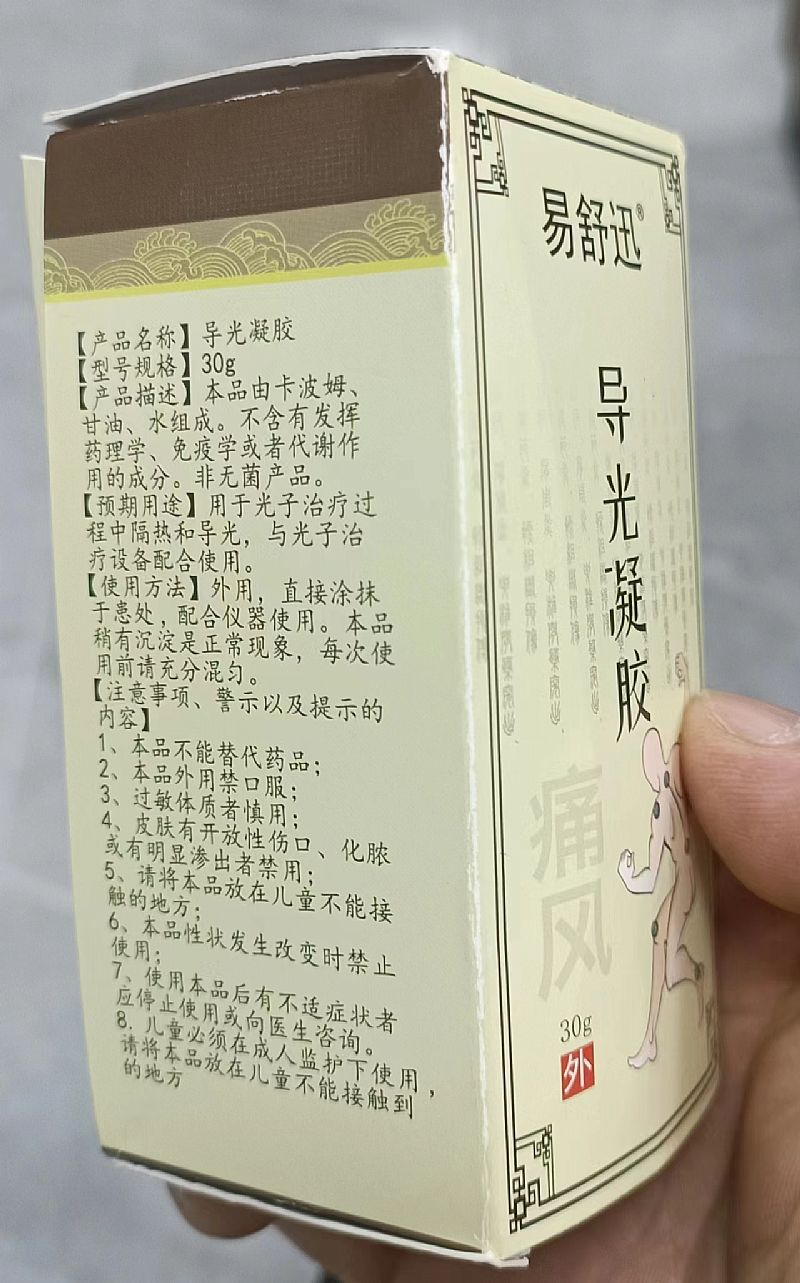 【产品名称】导光凝胶
【型号规格】30g
【产品描述】本品由卡波姆、
甘油、水组成。不含有发挥
药理学、免疫学或者代谢作
用的成分。非无菌产品。
【预期用途】用于光子治疗过
程中隔热和导光，与光子治
疗设备配合使用。
【使用方法】外用，直接涂抹
于患处，配合仪器使用。本品
稍有沉淀是正常现象，每次使
用前请充分混匀。
【注意事项、警示以及提示的
内容】
1、本品不能替代药品；
2、本品外用禁口服；
3、过敏体质者慎用；
4、皮肤有开放性伤口、化脓
或有明显渗出者禁用；
5、请将本品放在儿童不能接
触的地方；
6、本品性状发生改变时禁止
使用；
7、使用本品后有不适症状者
应停止使用或向医生咨询。
8.儿童必须在成人监护下使用，
请将本品放在儿童不能接触到
的地方
易舒迅®
导光凝胶
痛风
30g
外